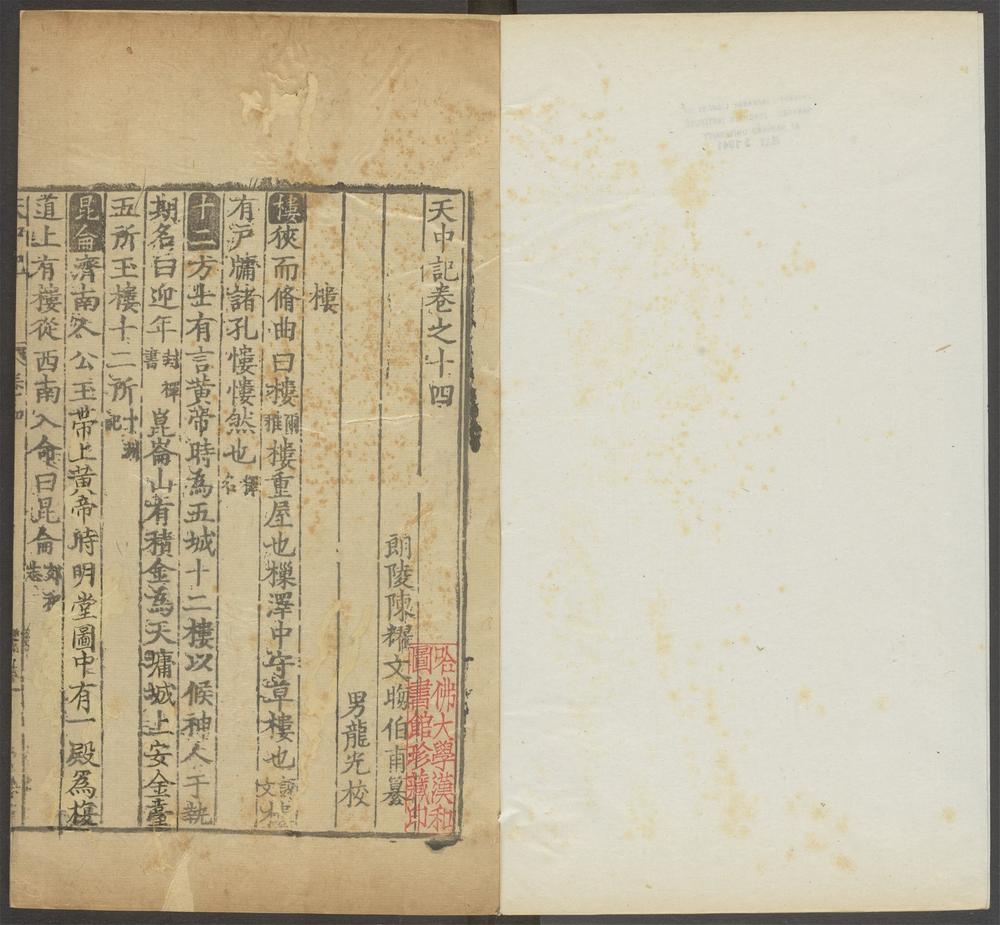 天中記卷之十四
朗陵陳耀文晦伯甫纂
男龍光校
樓
樓狹而脩曲曰樓爾雅樓重屋也樔澤中守草樓也說文樓
有戶牖諸孔慺慺然也釋名
十二方士有言黃帝時為五城十二樓以候神人于執
期名曰迎年封禪書崑崙山有積金為天墉城上安金臺
五所玉樓十二所十洲記
昆侖濟南人公玉帶上黃帝時明堂圖中有一殿為復
道上有樓從西南入命曰昆侖郊祀志
哈佛大學漢和
圖書館珍藏印
MAY 3 1941